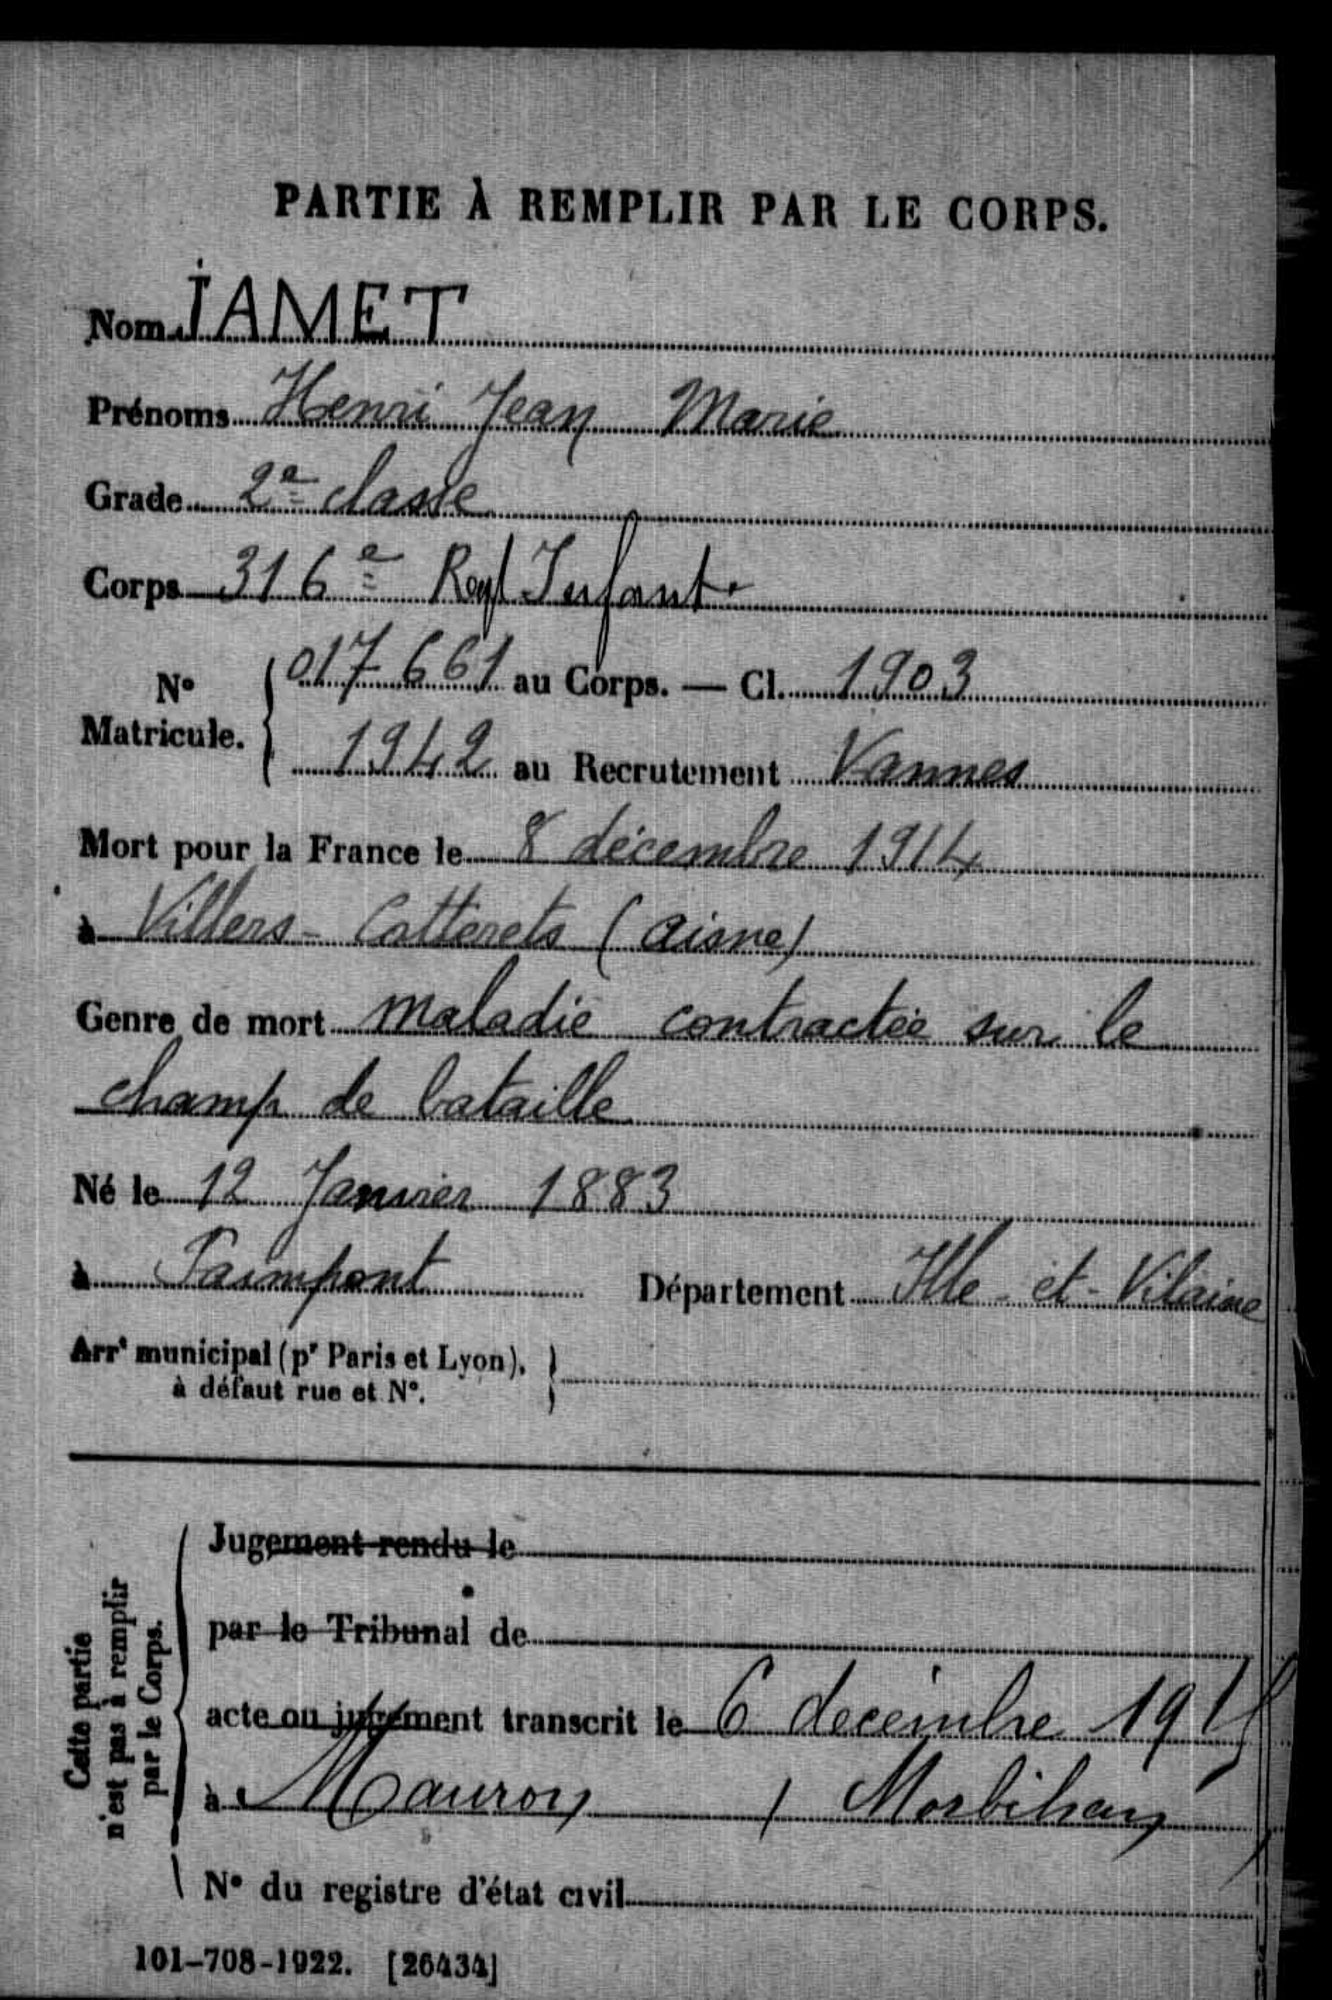 PARTIE À REMPLIR PAR LE CORPS.
Nom JAMET
Prénoms Henri Jean Marie
Grade 2e classe
Corps 316e Regt Infant.
N° Matricule. 017661 au Corps. — Cl. 1903
1942 au Recrutement Vannes
Mort pour la France le 8 décembre 1914
à Villers-Cotterets (Aisne)
Genre de mort maladie contractée sur le
champ de bataille
Né le 12 Janvier 1883
à Paimpont Département Ille-et-Vilaine
Arrt municipal (pr Paris et Lyon),
à défaut rue et N°.
Cette partie
n'est pas à remplir
par le Corps.
Jugement rendu le
par le Tribunal de
acte ou jugement transcrit le 6 decembre 1915
à Mauron / Morbihan
N° du registre d'état civil
101-708-1922. [26434]